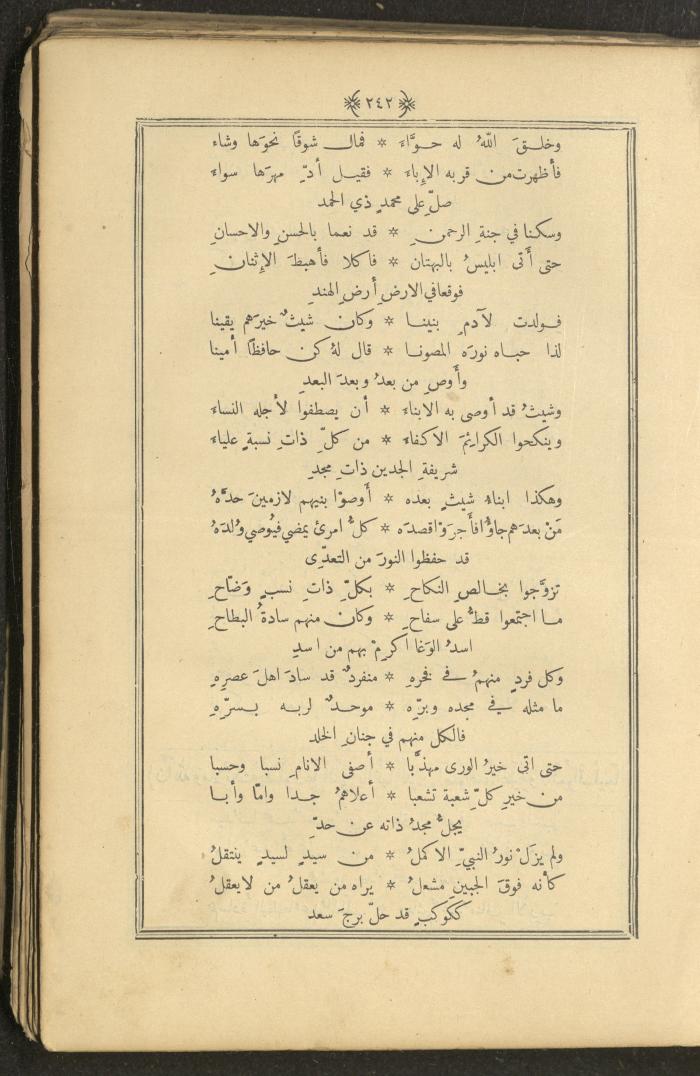 ٢٤٢
وخلـقَ اللهُ له حـوَّاءَ * فمال شوقًا نحوَها وشاء
فأظهرت من قربه الإِباءَ * فقيل أدِّ مهرَها سواء
صلّ على محمدٍ ذي الحمد
وسكنا في جنةِ الرحمنِ * قد نعما بالحسنِ والاحسانِ
حتى أَتى ابليسُ بالبهتان * فاكلا فأهبطَ الإِثنانِ
فوقعا في الارض أرضِ الهندِ
فولدت لآدمِ بنينا * وكان شيثٌ خيرَهم يقينا
لذا حباه نورَه المصونا * قال لهُ كن حافظًا أمينا
وأَوصِ من بعدُ وبعدَ البعدِ
وشيثُ قد أوصى به الابناءَ * أن يصطفوا لأجله النساءَ
وينكحوا الكرايمَ الاكفاءَ * من كلّ ذاتِ نسبةٍ علياءَ
شريفةِ الجدين ذاتِ مجدِ
وهكذا ابناءُ شيثٍ بعده * أَوصوْا بنيهم لازمينَ حدَّهُ
مَنْ بعدَهم جاؤُا فأَجرَوْا قصدَه * كلُّ امرئ يمضي فيُوصي وُلدَهُ
قد حفظوا النورَ من التعدِّى
تزوَّجوا بخالصِ النكاحِ * بكلِّ ذاتِ نسبٍ وَضّاحِ
ما اجتمعوا قطُّ على سفاحِ * وكان منهم سادةُ البطاحِ
اسدُ الوَغا اكرِمْ بهم من اسدِ
وكل فردٍ منهمُ في فخرهِ * منفردٌ قد سادَ اهلَ عصرِهِ
ما مثله في مجده وبرِّه * موحدٌ لربه بسرّهِ
فالكل منهم في جنانِ الخلد
حتى اتى خيرُ الورى مهذَّبا * أصفى الانامِ نسبا وحسبا
من خيرِ كلّ شعبة تشعبا * أعلاهمُ جدا وامّا وأبا
يجلُّ مجدُ ذاته عن حدّ
ولم يزلْ نورُ النبيِّ الاكملُ * من سيدٍ لسيدٍ ينتقلُ
كأنه فوقَ الجبينِ مشعلُ * يراه من يعقلُ من لا يعقلُ
ككوكبٍ قد حلّ برجَ سعد